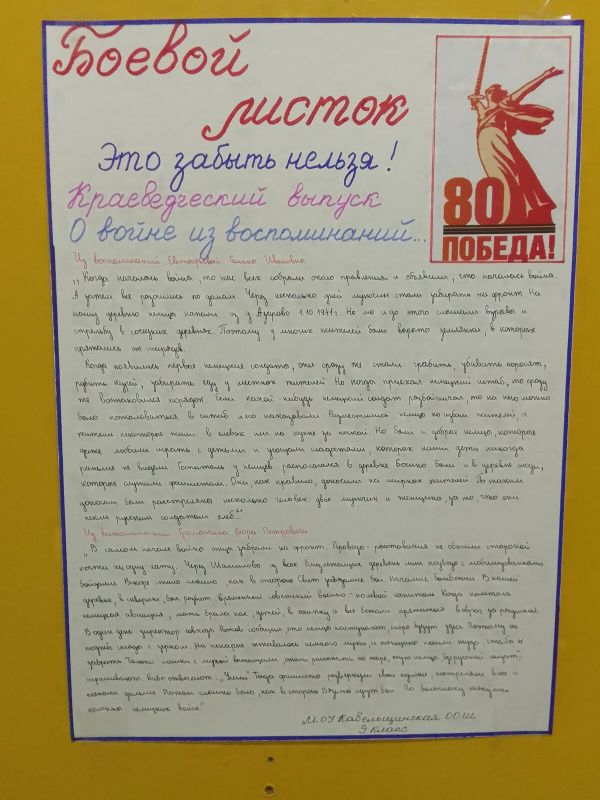 Боевой
листок
80
ПОБЕДА!
Это забыть нельзя!
Краеведческий выпуск
О войне из воспоминаний...
Из воспоминаний Евстафьевой Галины Ивановны
„Когда началась война, то нас всех собрали около правления и объявили, что началась война.
А затем все разошлись по домам. Через несколько дней мужчин стали забирать на фронт. На
нашу деревню немцы напали из д. Азарово 1.10.1941г. Но мы и до этого слышали взрывы и
стрельбу в соседних деревнях. Поэтому у многих жителей были вырыты землянки, в которых
прятались от снарядов.
Когда появились первые немецкие солдаты, они сразу же стали грабить, убивать поросят,
рубить гусей, забирать еду у местных жителей. Но когда приехал немецкий штаб, то сразу
же восстановился порядок. Если какой нибудь немецкий солдат разбойничал, то на него можно
было пожаловаться в штаб и его наказывали. Разместились немцы по избам жителей, а
жители некоторые жили в хлевах или на кухне за печкой. Но были и добрые немцы, которые
даже любили играть с детьми и угощали сладостями, которых наши дети никогда
раньше не видели. Госпиталь у немцев располагался в деревне
были и в деревне люди,
которые служили фашистам. Они как правило, доносили на мирных жителей. По таким
доносам были расстреляны несколько человек: двое мужчин и женщина, за то, что они
пекли русским солдатам хлеб.“
Из воспоминаний Егора Петровича
„В самом начале войны отца забрали на фронт. Проводы-расставания не обошли стороной
почти ни одну хату. Через Шамилово из всех близлежащих деревень шли подводы с мобилизованными
Вскоре стало слышно как в стороне
Начались бомбежки. В нашей
деревне, в сквере, был разбит временный советский военно-полевой госпиталь. Когда налетала
немецкая авиация, мать брала нас, детей, в охапку и все бежали прятаться в овраг за речушкой.
В один день директор совхоза
сообщил, что немцы наступают, скоро будут здесь. Поэтому
с зерном. На пекарне оставалось немного муки, и женщины пошли туда, чтобы её
забрать. Только мешки с мукой
стали
тут немцы. „Где русский солдат?“,
спрашивают. Бабы отвечают: „Ушли“. Тогда фашисты
свои
постреляли в
и
Потом слышно было, как в стороне Вязьмы идут бои. По большаку
колонны немецких войск“.
МОУ Кавельщинская ООШ
9 класс